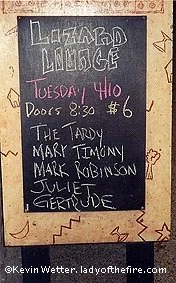 LIZARD
LOUNGE
TUESDAY 4/10
DOORS 8:30 $6
THE TARDY
MARY TIMONY
MARK ROBINSON
JULIET
GERTRUDE
©Kevin Wetter. ladyofthefire.com